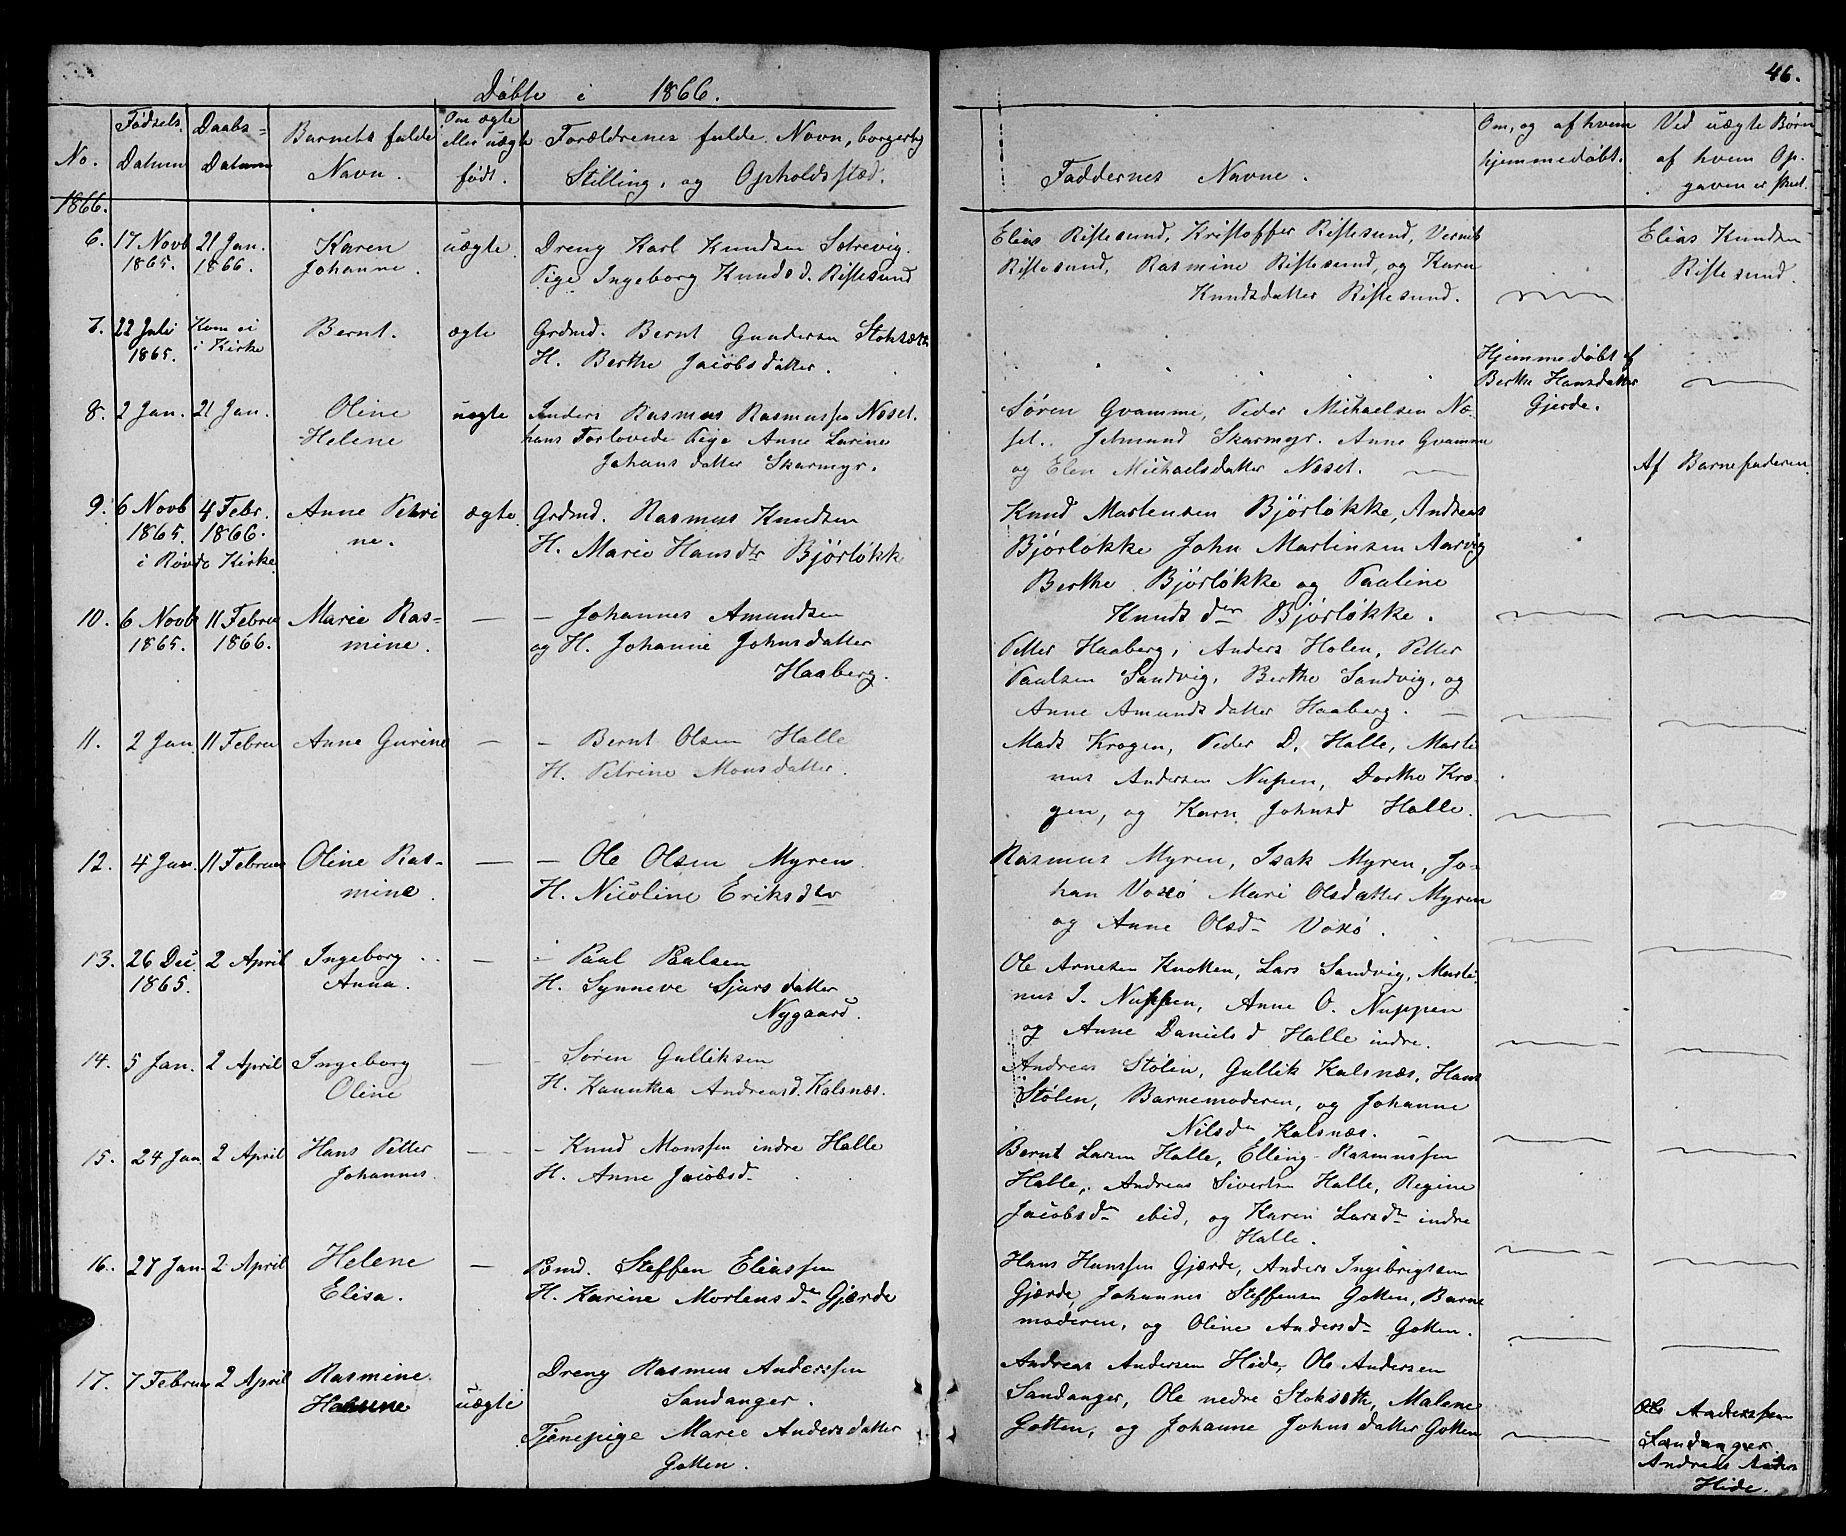 Døbte i 1866.
46.
No.
Fødsels Datum
Daabs= Datum
Barnets fulde Navn.
Om ægte eller uægte født.
Forældrenes fulde Navn, borgerlig Stilling, og Opholdsstæd.
Faddernes Navne.
Om, og af hvem hjemmedøbt.
Ved uægte Børn af hvem Opgaven er skeet.
1866.
6. 17 Novb 21 Jan. Karen uægte. Dreng Karl Knudsen Sætrevig.
1865. 1866. Johanne. Pige Ingeborg Knudsd. Ristesund
Elias Ristesund, Kristoffer Ristesund, Vernik
Ristesund, Rasmine Ristesund, og Karen
Knudsdatter Ristesund.
Elias Knudsen
Ristesund.
7. 22 Juli Kom ei Bernt. ægte Grdmd. Bernt Gundersen Stoksæth
1865. i Kirke H. Berthe Jacobsdatter.
Hjemmedøbt af
Berthe Hansdatter
Gjerde.
8. 2 Jan. 21 Jan. Oline uægte Inders Rasmus Rasmussen Noset.
Helene hans Forlovede Pige Anne Larine
Johansdatter Skarmyr.
Søren Gvamme, Peder Michaelsen No=
set. Jetmund Skarmyr. Anne Gvamme
og Elen Michaelsdatter Noset.
Af Barnefaderen
9. 6 Novb 4 Febr. Anne Petri ægte Grdmd. Rasmus Knudsen
1865. 1866. ne. H. Marie Hansdtr Bjørløkk
i Røvde Kirke
Knud Martensen Bjørløkke, Andreas
Bjørløkke John Martinsen Aarvig
Berthe Bjørløkke og Pauline
Knudsdtr Bjørløkke.
10. 6 Novb 11 Febru Marie Ras= — — Johannes Amundsen
1865. 1866. mine. og H. Johanne Johnsdatter
Haaberg.
Petter Haaberg, Anders Holen, Petter
Paulsen Sandvig, Berthe Sandvig, og
Anne Amundsdatter Haaberg. —
11. 2 Jan 11 Febru Anne Gurine — — Bernt Olsen Halle
H. Petrine Monsdatter.
Mads Krogen, Peder D. Halle, Marti
nus Andersen Nupen, Dorthe Kro=
gen, og Karn Johnsd Halle.
12. 4 Jan. 11 Februar Oline Ras= — — Ole Olsen Myren.
mine. H. Nicoline Eriksdtr
Rasmus Myren, Isak Myren, Jo=
han Voxø Mari Olsdatter Myren
og Anne Olsdr Voxø.
13. 26 Dec 2 April Ingeborg — — Paul Paulsen
1865. Anna. H. Synneve Sjursdatter
Nygaard.
Ole Arnesen Knotten, Lars Sandvig, Marti
nus I. Nuppen, Anne O. Nuppen
og Anne Danielsd Halle indre.
14. 5 Jan. 2 April Ingeborg — — Søren Gulliksen
Oline H. Kanutha Andreasd. Kalsnæs.
Andreas Stølen, Gullik Kalsnæs, Hans
Stølen, Barnemoderen, og Johanne
Nilsdr Kalsnæs.
15. 24 Jan 2 April Hans Petter — — Knud Monssen indre Halle
Johannes. H. Anne Jacobsdr
Bernt Larsen Halle, Elling Rasmussen
Halle, Andreas Sivertsen Halle, Regine
Jacobsdr ibid, og Karen Larsdr indre
Halle.
16. 27 Jan 2 April Helene — Bmd. Steffen Eliassen
Elisa. H. Karine Mortensdr Gjærde
Hans Hanssen Gjærde, Anders Ingebrigtsen
Gjærde, Johannes Steffensen Gotten, Barne
moderen, og Oline Andersdr Gotten.
17. 7 Februar 2 April Rasmine uægte Dreng Rasmus Anderssen
Hansine Sandanger.
Tjenepige Marie Andersdatter
Gotten.
Andreas Andersen Hide, Ole Andersen
Sandanger, Ole nedre Stoksæth, Malene
Gotten, og Johanne Johnsdatter Gotten
Ole Anderssen
Sandanger.
Andreas Anders
Hide.